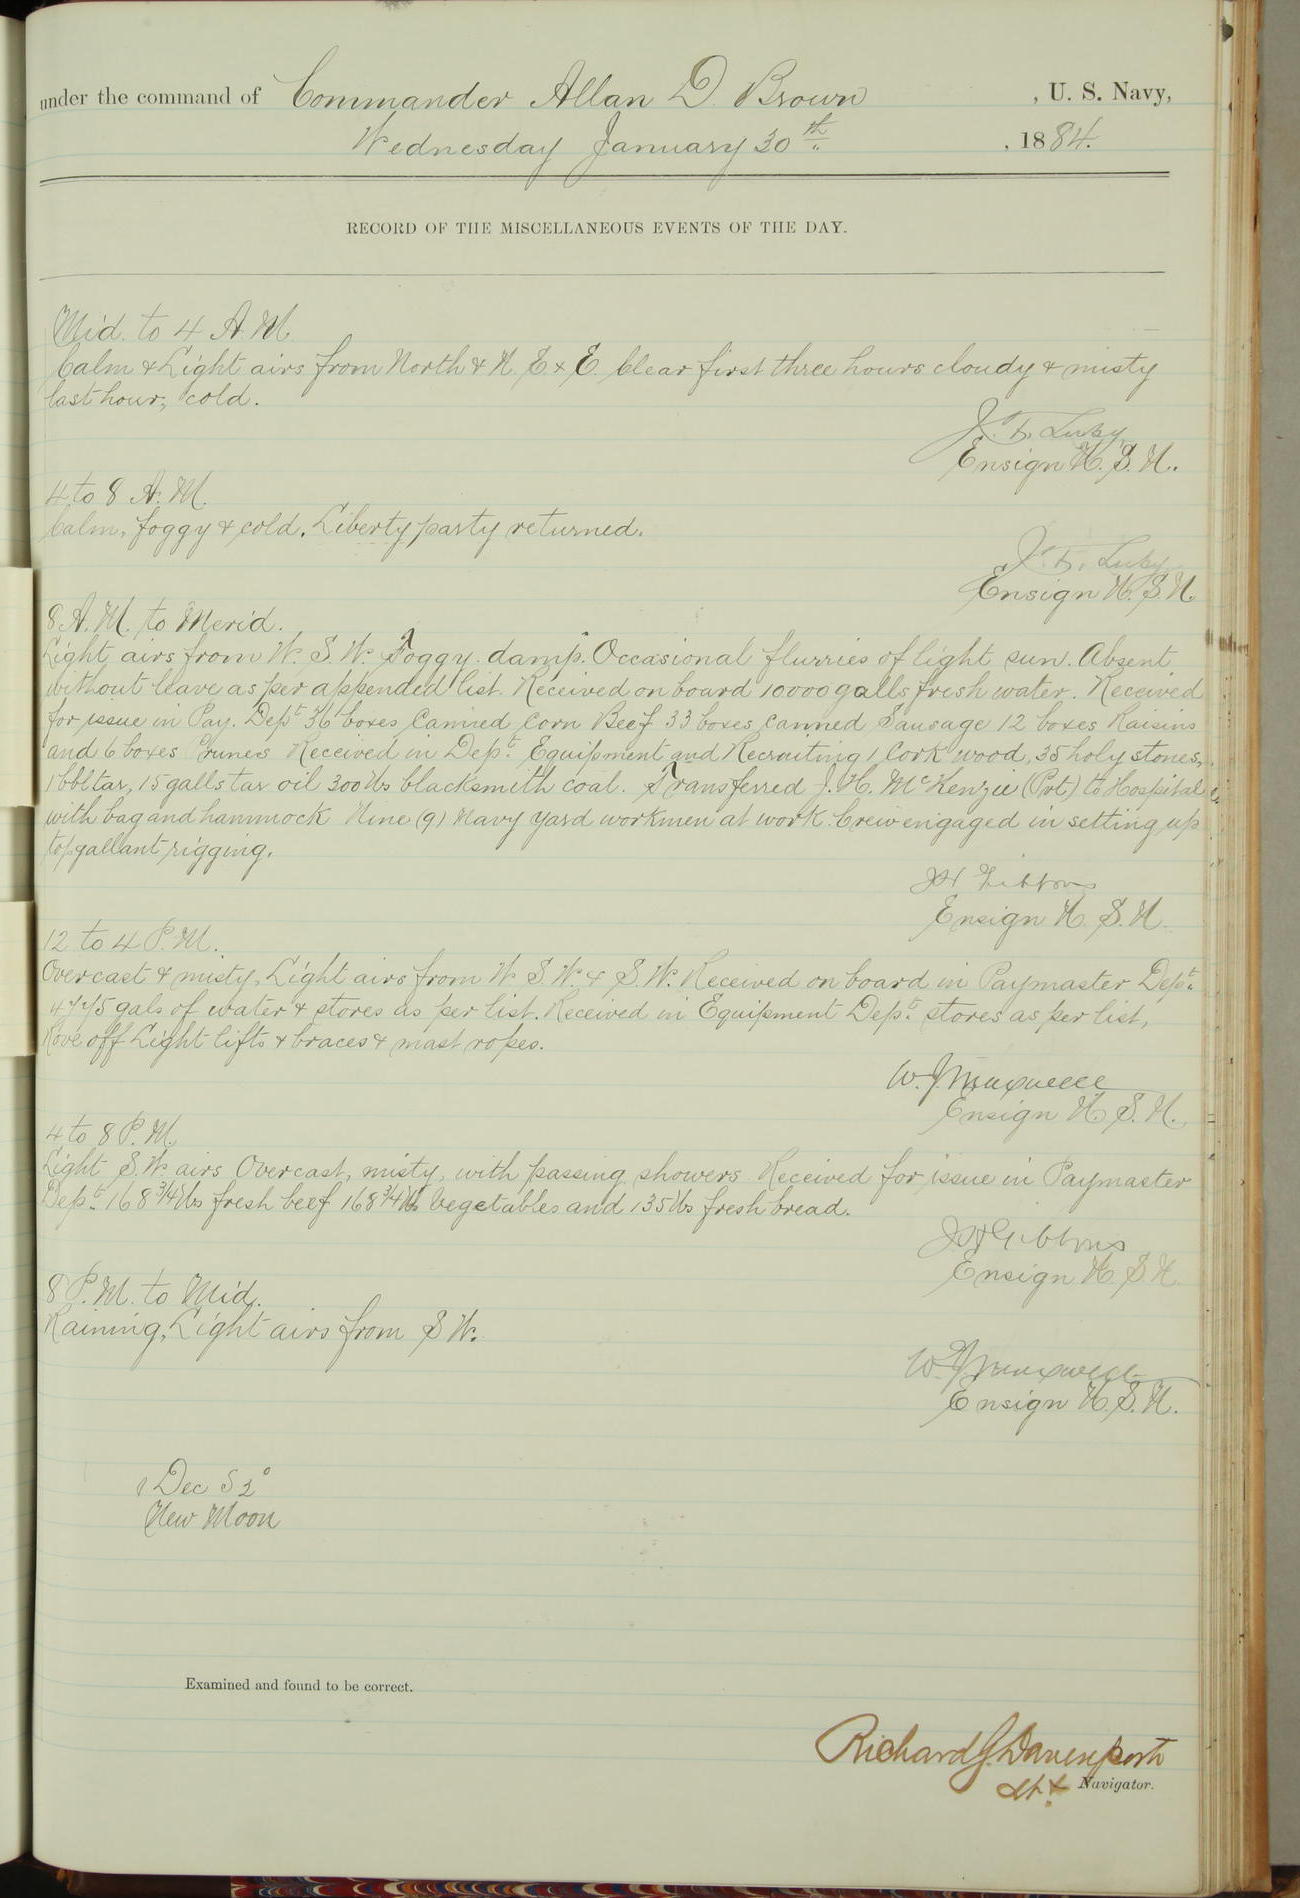 under the command of Commander Allan D. Brown , U. S. Navy,
Wednesday January 30th , 1884.
RECORD OF THE MISCELLANEOUS EVENTS OF THE DAY.
Mid. to 4 A. M.
Calm & Light airs from North & N. E & E. Clear first three hours cloudy & misty
last hour, cold.
J. F. Luby
Ensign U. S. N.
4 to 8 A. M.
Calm, foggy & cold. Liberty party returned.
J. F. Luby
Ensign U. S. N.
8 A. M. to Merid.
Light airs from W. S. W. Foggy. damp. Occasional flurries of light sun. Absent
without leave as per appended list. Received on board 10000 galls fresh water. Received
for issue in Pay. Dept. 36 boxes Canned Corn Beef 33 boxes canned Sausage 12 boxes Raisins
and 6 boxes Prunes Received in Dept. Equipment and Recruiting 1 Cork wood, 35 holy stones,
1 bbl tar, 15 galls tar oil 300 lbs blacksmith coal. Transferred J. H. McKenzie (Pvt) to Hospital
with bag and hammock Nine (9) Navy yard workmen at work. Crew engaged in setting up
topgallant rigging.
J H Gibbons
Ensign U. S. N.
12 to 4 P. M.
Overcast & misty, Light airs from W. S. W. & S. W. Received on board in Paymaster Dept.
4775 gals of water & stores as per list. Received in Equipment Dept. stores as per list,
Rove off Light lifts & braces & mast ropes.
W. J. Maxwell
Ensign U. S. N.
4 to 8 P. M.
Light S. W. airs Overcast, misty, with passing showers Received for issue in Paymaster
Dept. 168 3/4 lbs fresh beef 168 3/4 lbs vegetables and 135 lbs fresh bread.
J H Gibbons
Ensign U. S. N.
8 P. M. to Mid.
Raining, Light airs from S W.
W. J. Maxwell
Ensign U. S. N.
Dec S 2°
New Moon
Examined and found to be correct.
Richard G. Davenport
Lt. Navigator.